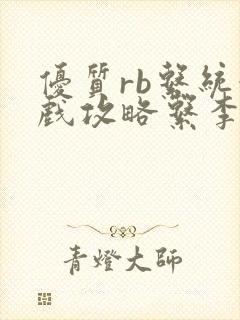 優質rb繫統
戲攻略繫李
青燈大師